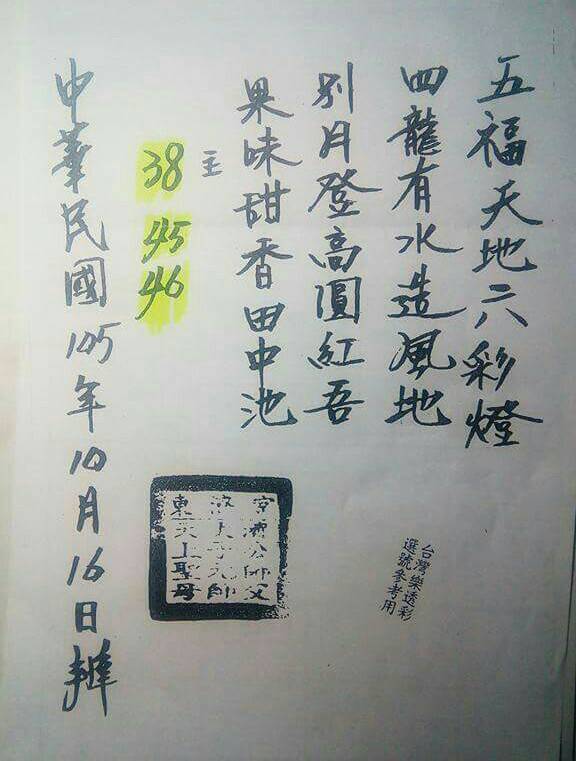 五福天地六彩燈
四龍有水造風地
別月登高圓紅吾
果味甜香田中池
主
38
45
46
中華民國105年10月16日
台灣樂透彩
選號參考用
濟公師父
元帥
天上聖母